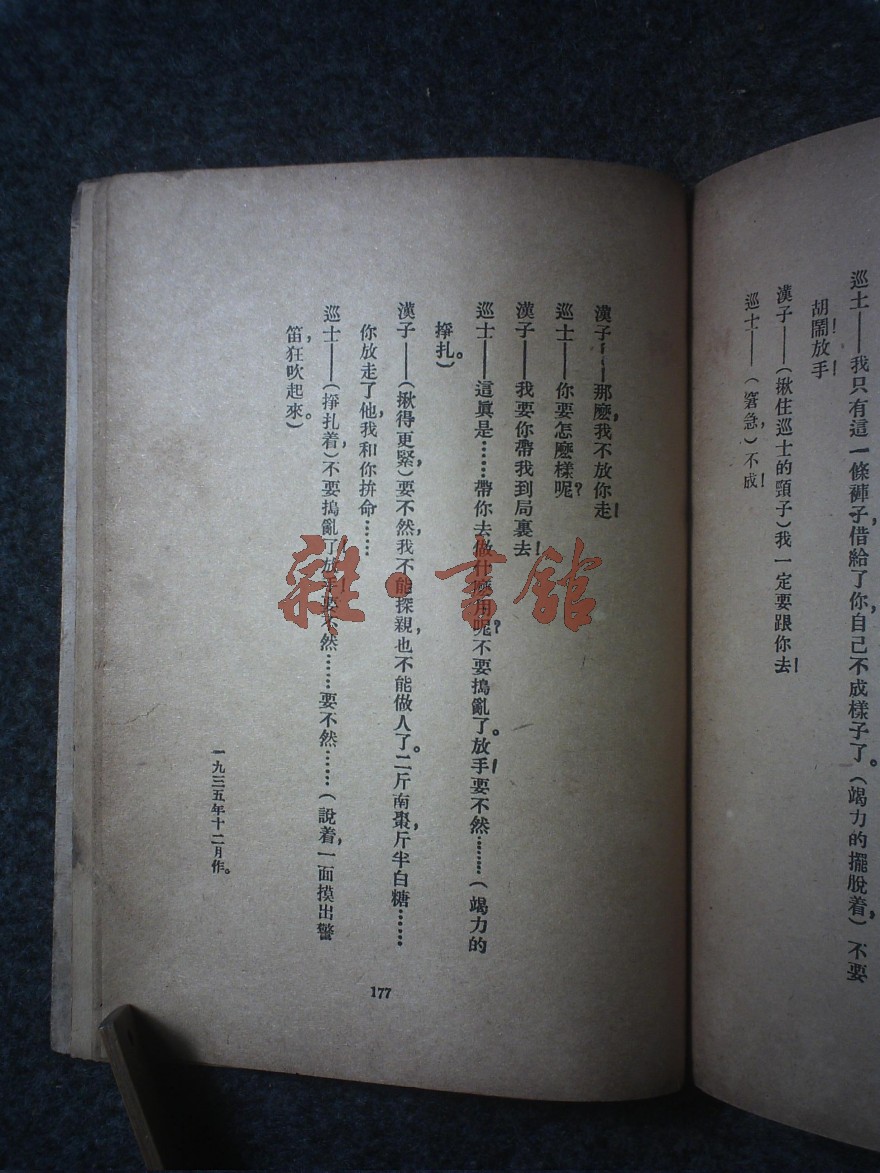 巡士——我只有這一條褲子，借給了你，自己不成樣子了。（竭力的擺脫着，）不要
胡鬧！放手！
漢子——（揪住巡士的頸子）我一定要跟你去！
巡士——（窘急，）不成！
漢子——那麽，我不放你走！
巡士——你要怎麽樣呢？
漢子——我要你帶我到局裏去！
巡士——這眞是……帶你去做什麽用呢？不要搗亂了。放手！要不然……（竭力的
掙扎。）
漢子——（揪得更緊，）要不然，我不能探親，也不能做人了。二斤南棗，斤半白糖……
你放走了他，我和你拚命……
巡士——（掙扎着，）不要搗亂了，放手！要不然……要不然……（說着，一面摸出警
笛，狂吹起來。）
一九三五年十二月作。
177
雜·書館